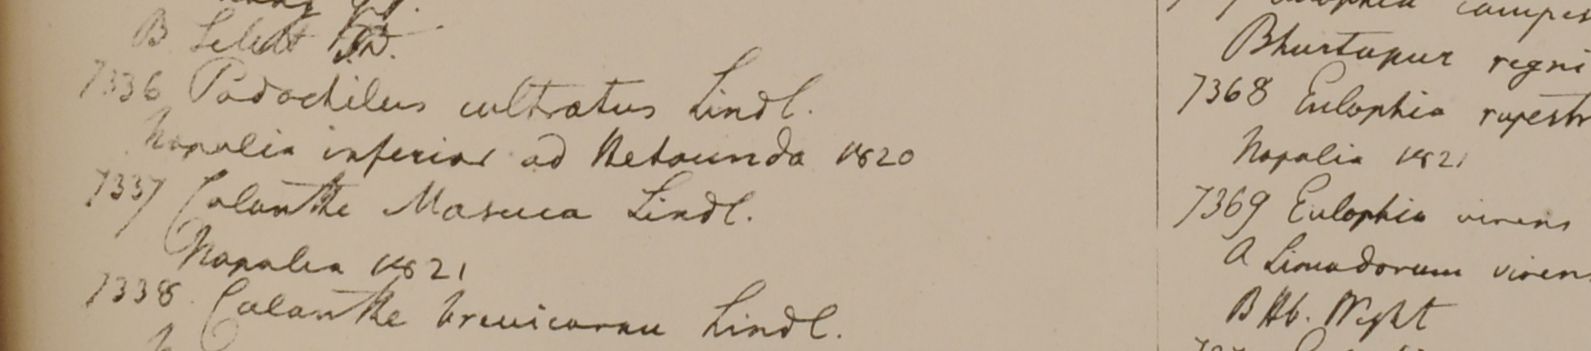 B Silhet F.D.
7336 Podochilus cultratus Lindl.
Napalia inferior ad Hetounda 1820
7337 Calanthe Masuca Lindl.
Napalia 1821
7338 Calanthe brevicornu Lindl.
Bhurtupur regni
7368 Eulophia rupestr
Napalia 1821
7369 Eulophia virens
A Limodorum viren
B Hb. Wight